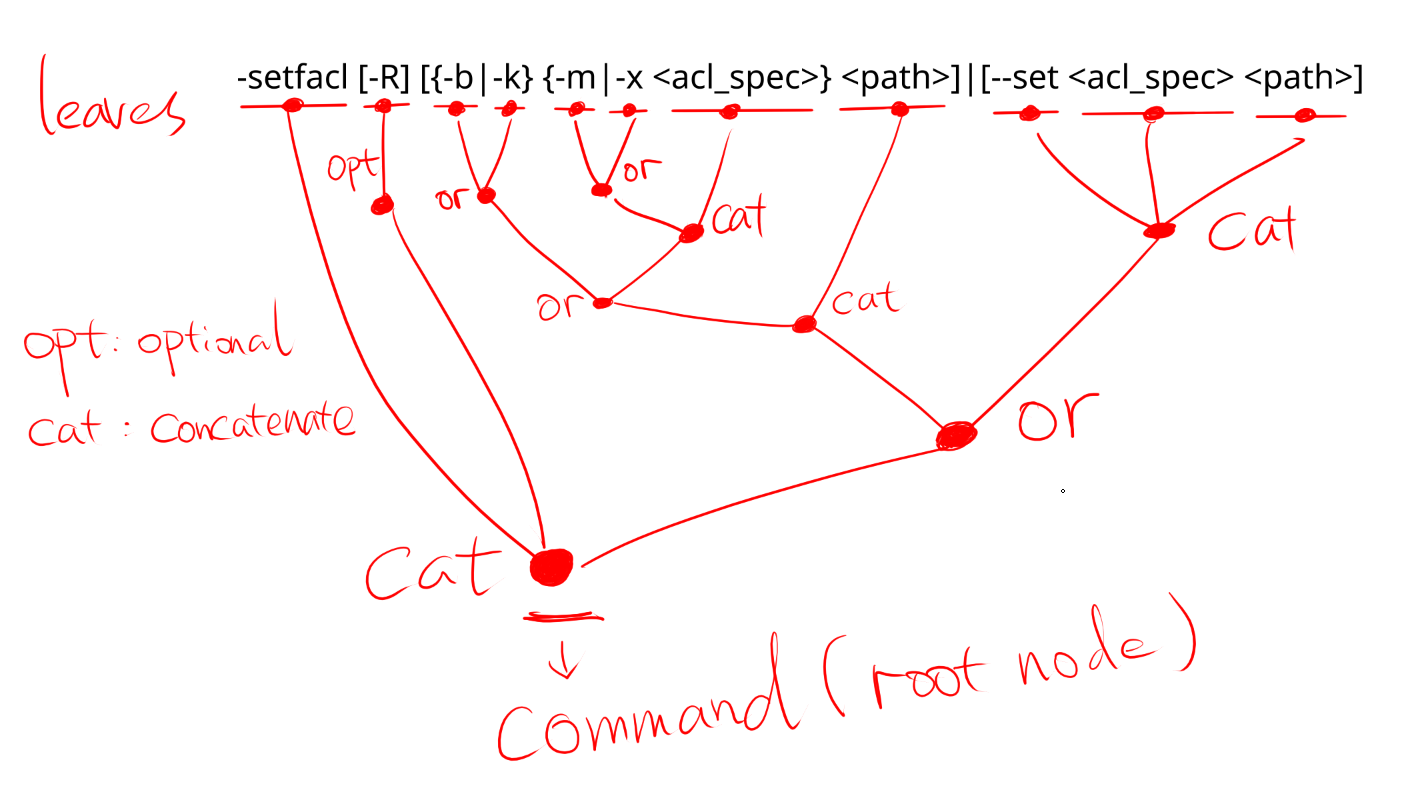 -setfacl [-R] [{-b|-k} {-m|-x <acl_spec>} <path>]|[--set <acl_spec> <path>]
leaves
opt
or
or
cat
Cat
or
cat
opt: optional
cat : Concatenate
or
Cat
Command (root node)